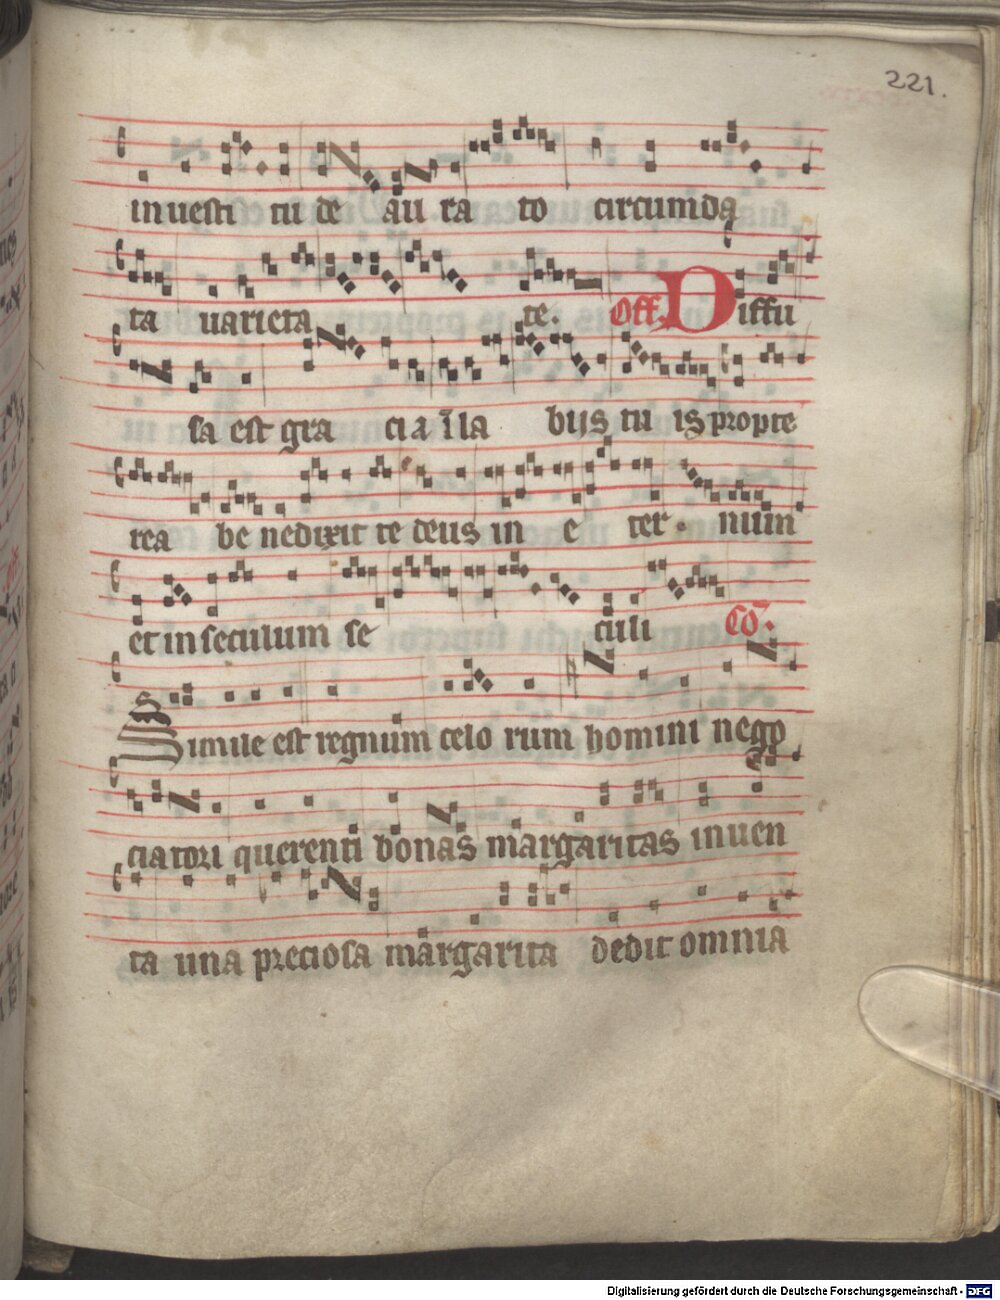 221.
in uesti tu de au ra to circumda
ta uarieta te. Off. Diffu
sa est gra ci a ī la bijs tu is propte
rea be nedixit te deus in e ter num
et in seculum se culi Cō.
Simile est regnum celo rum homini nego
ciatori querenti bonas margaritas inuen
ta una preciosa margarita dedit omnia
Digitalisierung gefördert durch die Deutsche Forschungsgemeinschaft - DFG